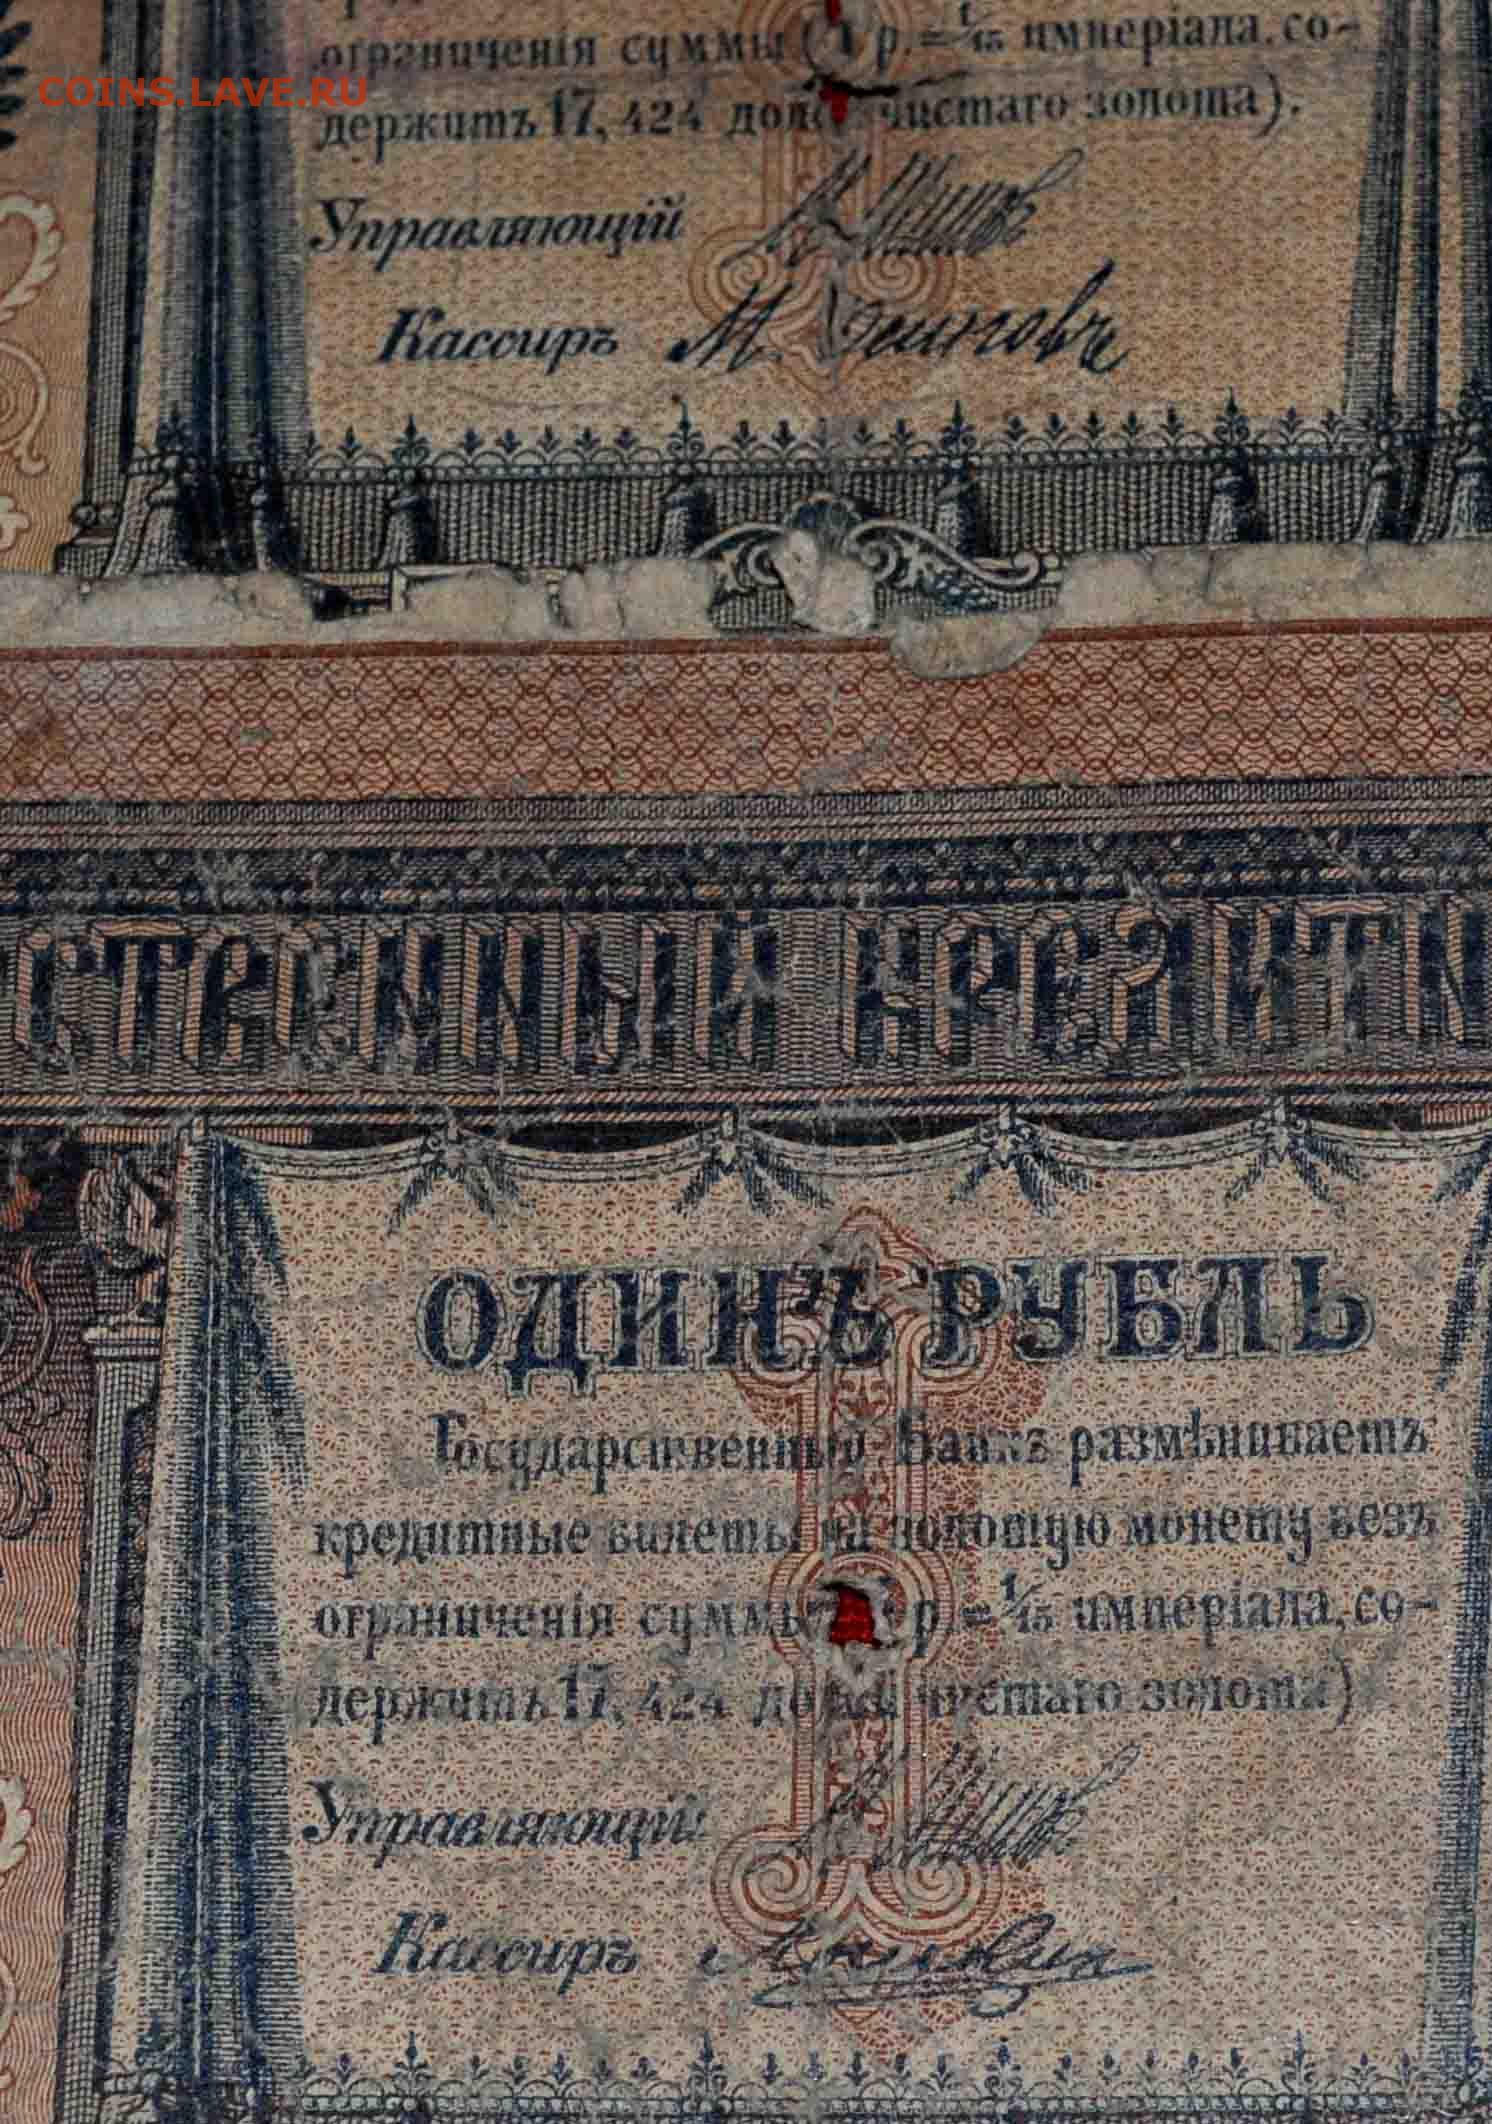 ограниченія суммы (1 р. = 1/15 имперіала, со-
COINS.LAVE.RU
держитъ 17,424 доли чистаго золота).
Управляющій
Кассиръ М.
СТВЕННЫЙ КРЕДИТН
ОДИНЪ РУБЛЬ
Государственный Банкъ размѣниваетъ
кредитные билеты на золотую монету безъ
ограниченія суммы р. = 1/15 имперіала, со-
держитъ 17,424 доли чистаго золота)
Управляющій
Кассиръ